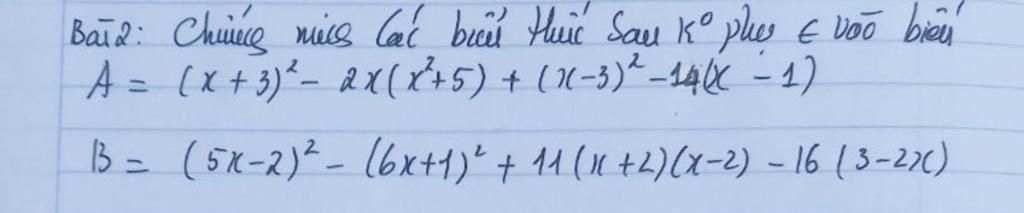 Bài 2: Chứng minh các biểu thức sau K° phụ ∈ vào biến
A = (x + 3)² - 2x(x²+5) + (x-3)² - 14(x - 1)
B = (5x-2)² - (6x+1)² + 11(x+2)(x-2) - 16(3-2x)